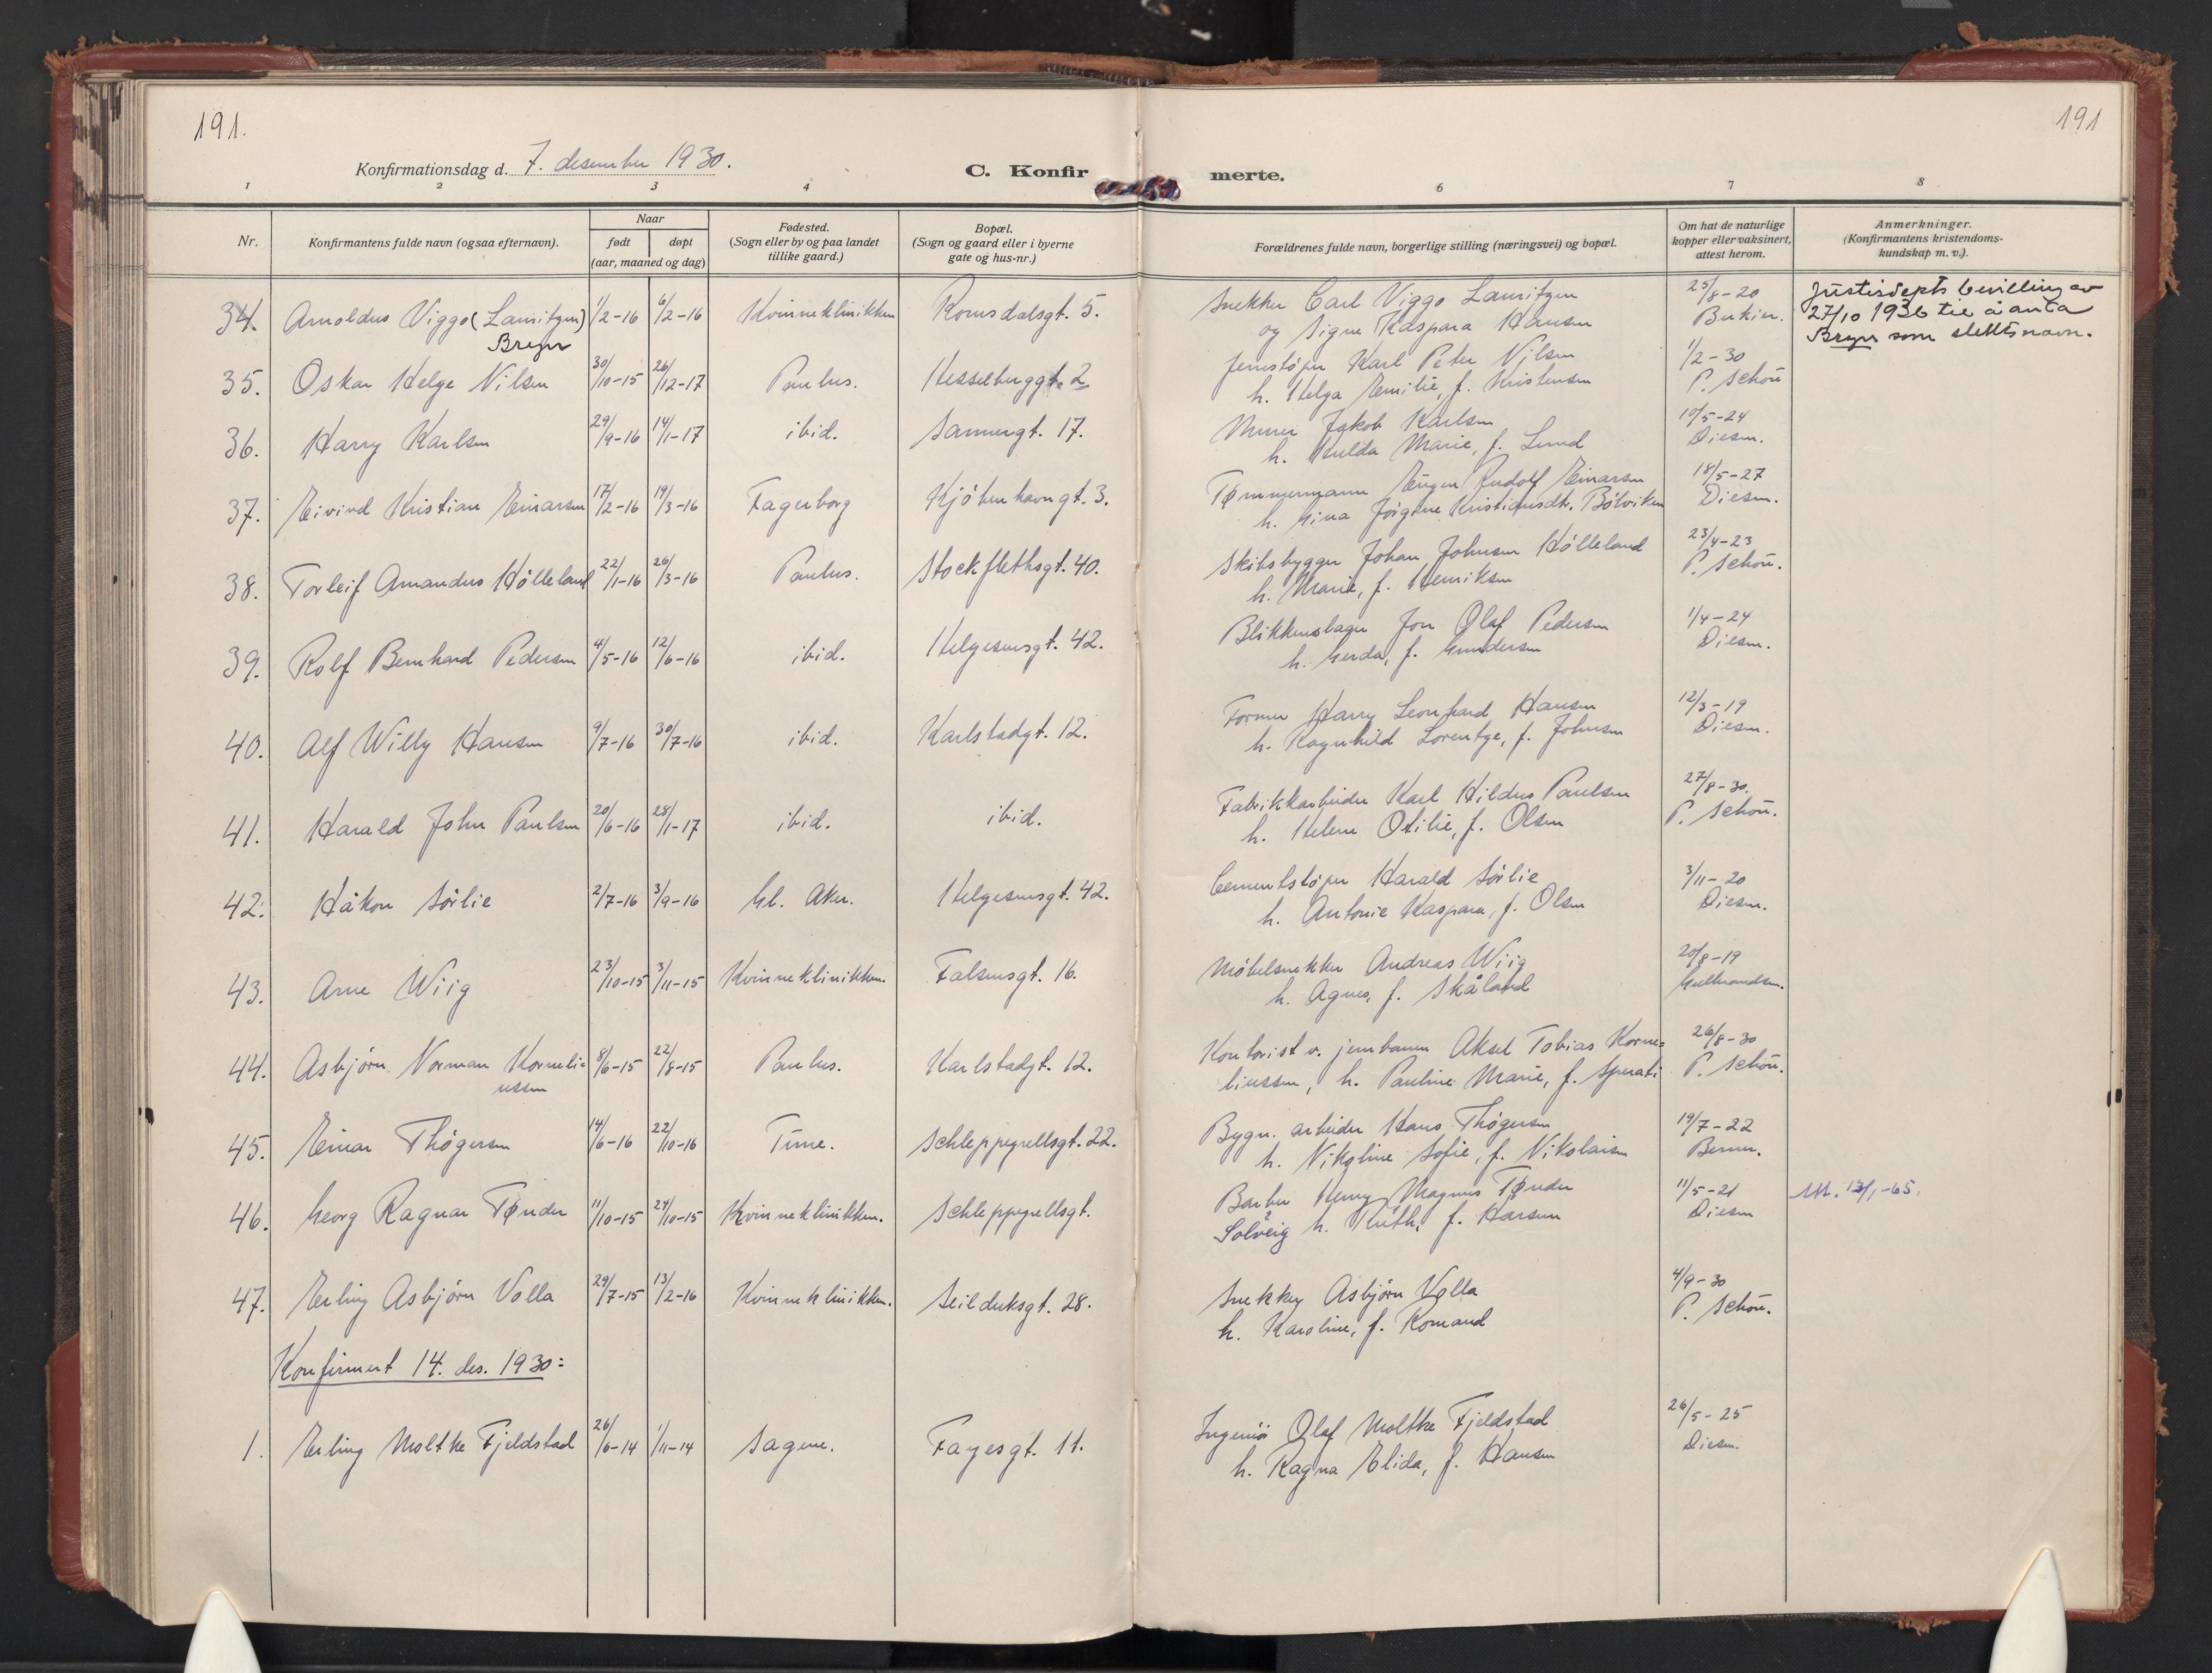 191.
191
Konfirmationsdag d. 7. desember 1930.
C. Konfir
merte.
1
2
3
4
6
7
8
Nr.
Konfirmantens fulde navn (ogsaa efternavn).
Naar
født
døpt
(aar, maaned og dag)
Fødested.
(Sogn eller by og paa landet
tillike gaard.)
Bopæl.
(Sogn og gaard eller i byerne
gate og hus-nr.)
Forældrenes fulde navn, borgerlige stilling (næringsvei) og bopæl.
Om hat de naturlige
kopper eller vaksinert,
attest herom.
Anmerkninger.
(Konfirmantens kristendoms-
kundskap m. v.).
34. Arnoldus Viggo (Lauritzen) 1/2-16 6/2-16 Kvinneklinikken Romsdalsgt. 5. Snekker Carl Viggo Lauritzen 25/8-20 Justisdepts bevilling av
Breyer og Signe Kaspara Hansen 27/10 1936 til å anta
som slektsnavn.
35. Oskar Helge Nilsen 30/10-15 26/12-17 Paulus. Hesselberggt. 2 Jernstøper Karl Peter Nilsen 1/2-30
h. Helga Emilie, f. Kristensen P. Schøn
36. Harry Karlsen 29/9-16 14/1-17 ibid. Sannergt. 17. Murer Jakob Karlsen 10/5-24
h. Hulda Marie, f. Lund Diesen.
37. Eivind Kristian Einarsen 17/2-16 19/3-16 Fagerborg Kjöbenhavngt. 3. Tømmermann Eugen Rudolf Einarsen 18/5-27
h. Gina Jörgine Kristiansdt. Bölviken Diesen.
38. Torleif Amandus Hölleland 22/1-16 26/3-16 Paulus. Stockflethsgt. 40. Skibsbygger Johan Johnsen Hölleland 23/4-23
h. Marie, f. Henriksen P. Schøn.
39. Rolf Bernhard Pedersen 4/5-16 12/6-16 ibid. Helgesensgt. 42. Blikkenslager Jon Olaf Pedersen 1/4-24
h. Gerda, f. Gundersen Diesen.
40. Alf Willy Hansen 9/7-16 30/7-16 ibid. Karlstadgt. 12. Former Harry Leonhard Hansen 12/3-19
h. Ragnhild Lorentze, f. Johnsen Diesen.
41. Harald John Paulsen 20/6-16 28/1-17 ibid. ibid. Fabrikkarbeider Karl Hildus Paulsen 27/8-30.
h. Helene Otilie, f. Olsen P. Schøn.
42. Håkon Sörlie 2/7-16 3/9-16 Gl. Aker. Helgesensgt. 42. Cementstöper Harald Sörlie 3/11-20
h. Antonie Kaspara, f. Olsen Diesen.
43. Arne Wiig 23/10-15 3/11-15 Kvinneklinikken. Falsensgt. 16. Möbelsnekker Andreas Wiig 20/8-19
h. Agnes, f. Skåland Gulbrandsen.
44. Asbjörn Norman Korneli= 8/6-15 22/8-15 Paulus. Karlstadgt. 12. Kontorist v. jernbanen Aksel Tobias Korne= 26/8-30
ussen liussen, h. Pauline Marie, f. Sperati P. Schøn.
45. Einar Thögersen 14/6-16 22/10-16 Time. Schleppegrellsgt. 22. Bygn. arbeider Hans Thögersen 19/7-22
h. Nikoline Sofie, f. Nikolaisen Berner.
46. Georg Ragnar Tønder 11/10-15 24/10-15 Kvinneklinikken. Schleppegrellsgt. Barber Henry Magnus Tønder 11/5-21 Utt. 13/1-65.
Solveig h. Ruth, f. Hansen Diesen
47. Erling Asbjörn Volla 29/7-15 13/2-16 Kvinneklinikken. Seilduksgt. 28. Snekker Asbjörn Volla 4/9-30
h. Karoline, f. Romand P. Schøn.
Konfirmert 14. des. 1930:
1. Erling Moltke Fjeldstad 26/6-14 1/11-14 Sagene. Fayesgt. 11. Ingeniör Olaf Moltke Fjeldstad 26/5-25
h. Ragna Elida, f. Hansen Diesen.